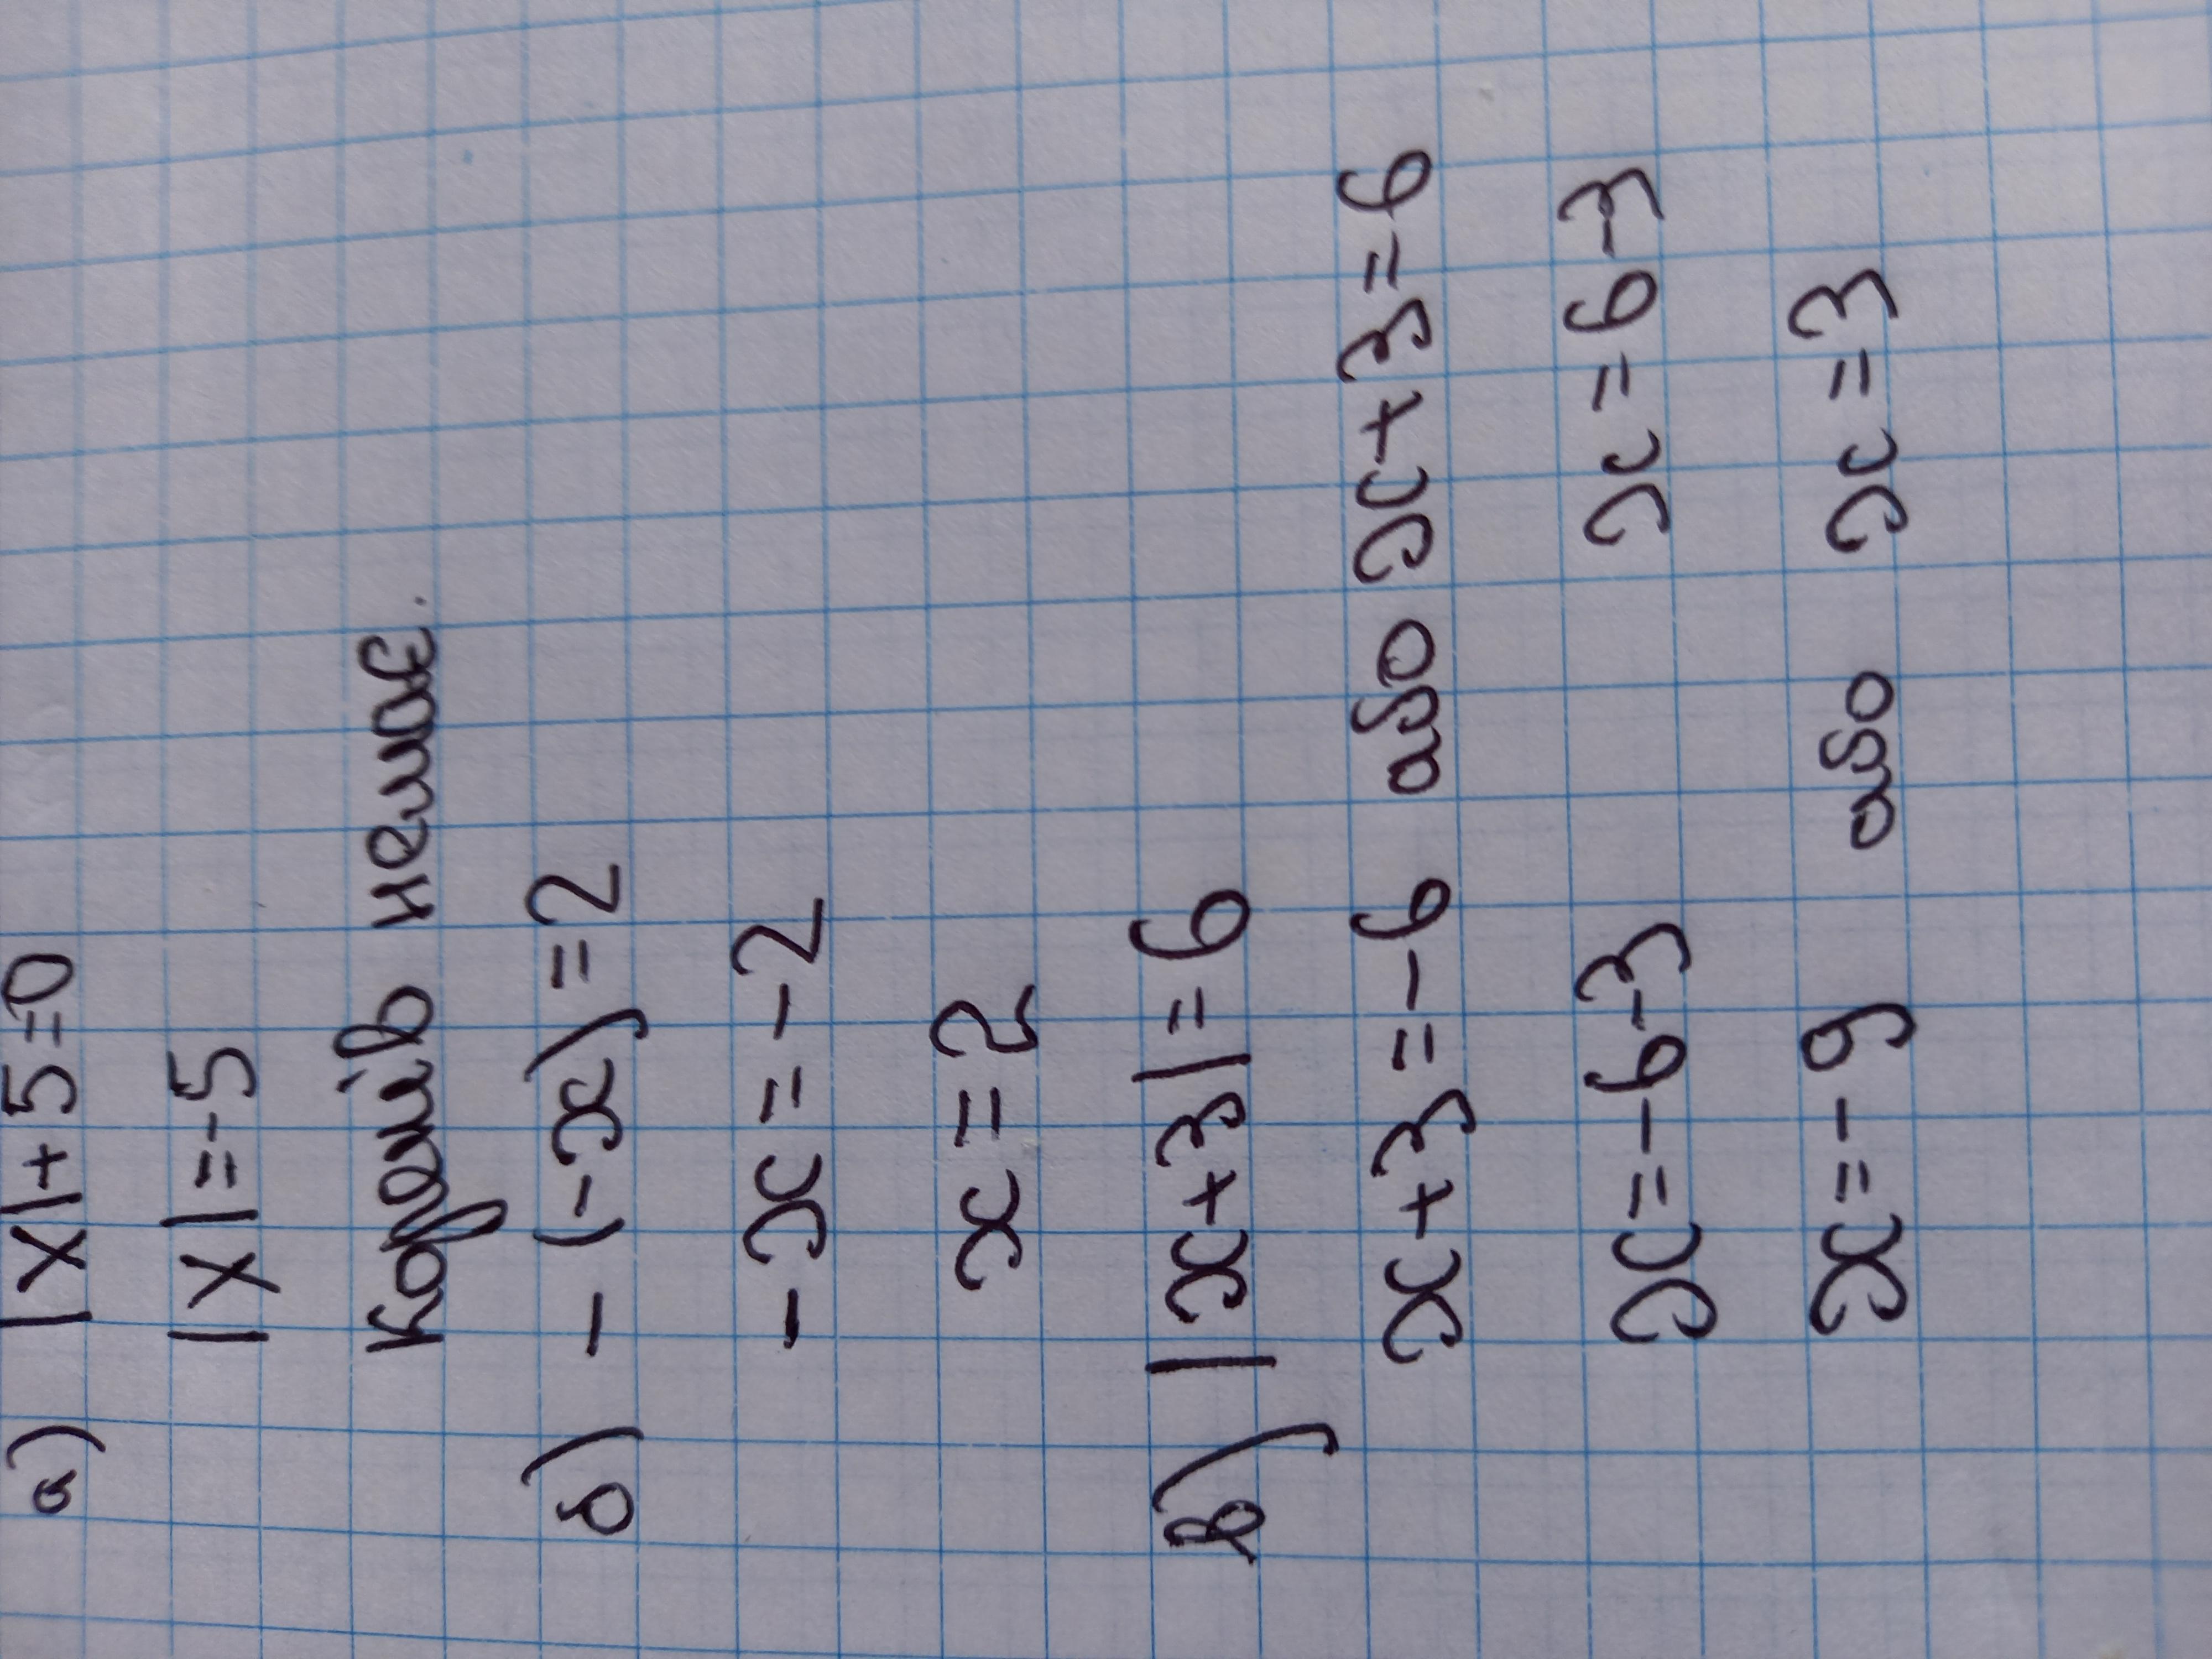 а) |x|+5=0
|x|=-5
Коренів немає.
б) -(-x)=2
-x=-2
x=2
в) |x+3|=6
x+3=-6 або x+3=6
x=-6-3 x=6-3
x=-9 або x=3